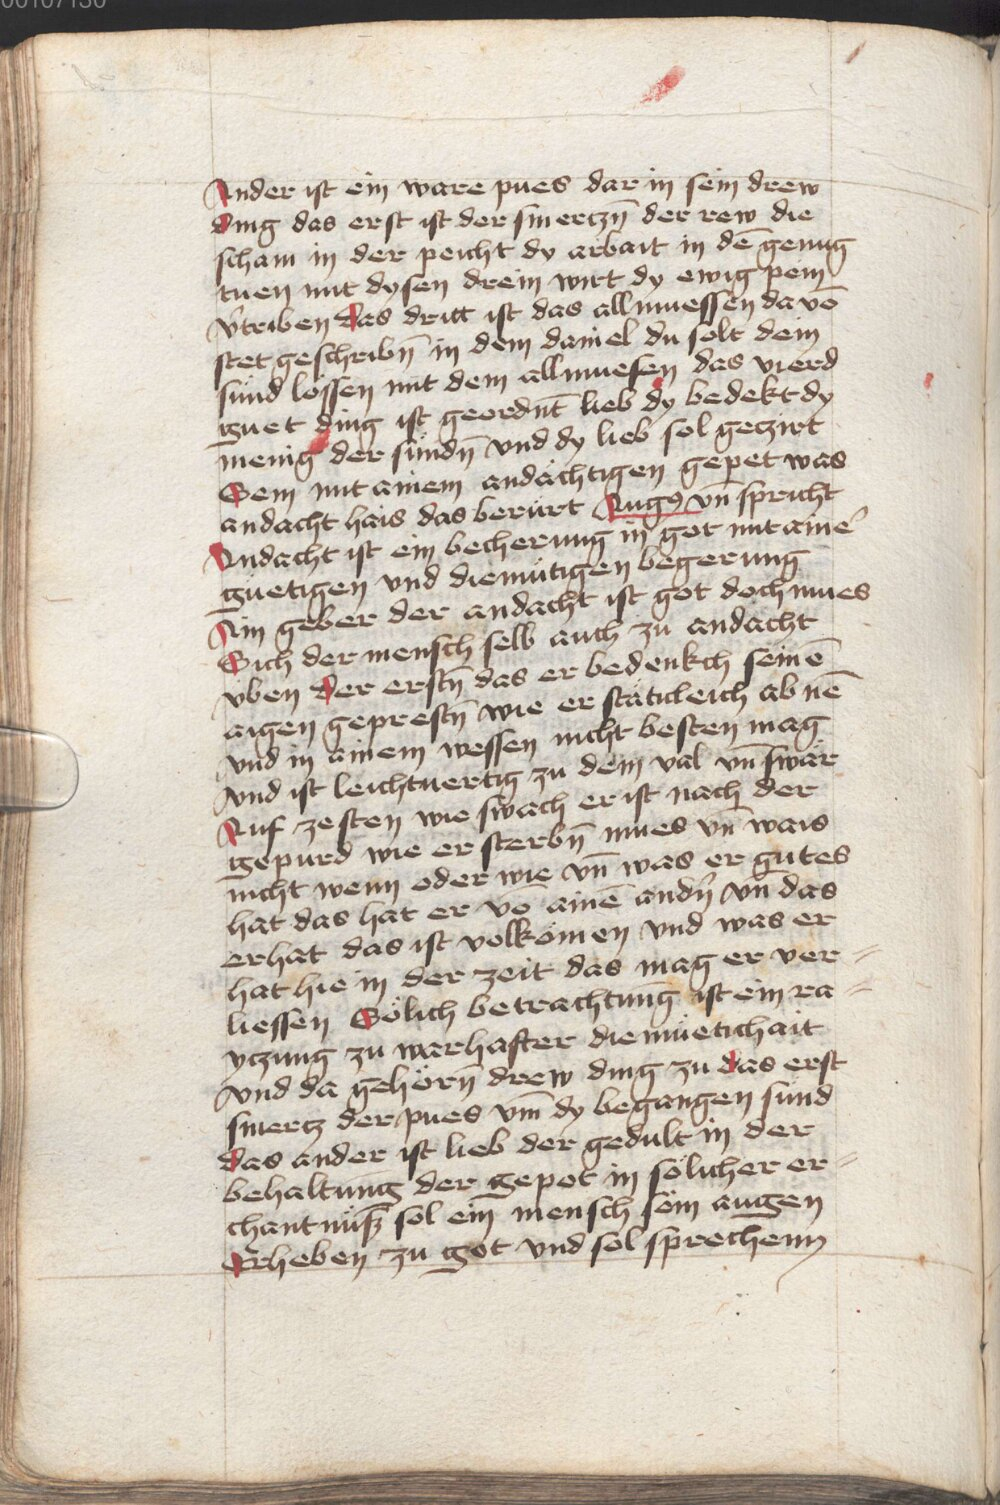 00107130
Ander ist ein ware pues dar in sein drew
ding das erst ist der smerczn̄ der rew die
scham in der peicht dy arbait in dē genug
tuen mit dysen drein wirt dy ewig pein
v̄treiben das dritt ist das allmuessen da vō
stet geschribn̄ in dem daniel du solt dein
sünd lössen mit dem allmuesen das vierd
guet ding ist geordnt̄ lieb dy bedekt dy
menig der sündn̄ vnd dy lieb sol geczirt
Sein mit ainem andächtigen gepet was
andacht hais das berürt Augꝰ vn̄ spricht
Andacht ist ein becherung in got mit aīe᷑
güetigen vnd diemütigen begerung
Ain geber der andacht ist got doch mues
Sich der mensch selb auch zu andacht
vben Der erstn̄ das er bedenkch seinē
aigen geprestn̄ wie er stäticleich ab nē
vnd in ainem wessen nicht besten mag
vnd ist leichtuertig zu dem val vn̄ swär
Auf ze sten wie swach er ist nach der
gepurd wie er sterbn̄ mues vn̄ wais
nicht wenn oder wie vn̄ was er gutes
hat das hat er vō ainē andn̄ vn̄ das
er hat das ist volkömen vnd was er
hat hie in der zeit das mag er ver=
liessen Sölich betrachtung ist ein ra=
yczung zu warhafter diemüetichait
vnd da gehörn̄ drew ding zu das erst
smercz der pues vm̄ dy begangen sünd
das ander ist lieb der gedult in der
behaltung der gepot in sölicher er=
chantnüß sol ein mensch sein augen
Erheben zu got vnd sol sprechenn